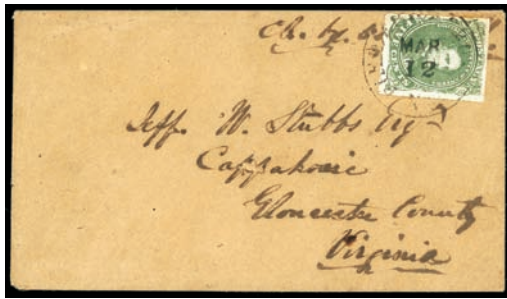 MAR
12
Jeff. W. Stubbs Esq
Cappahosic
Gloucester County
Virginia